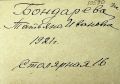 Бондарева
Татьяна Ивановна
1921г.
Столярная 16